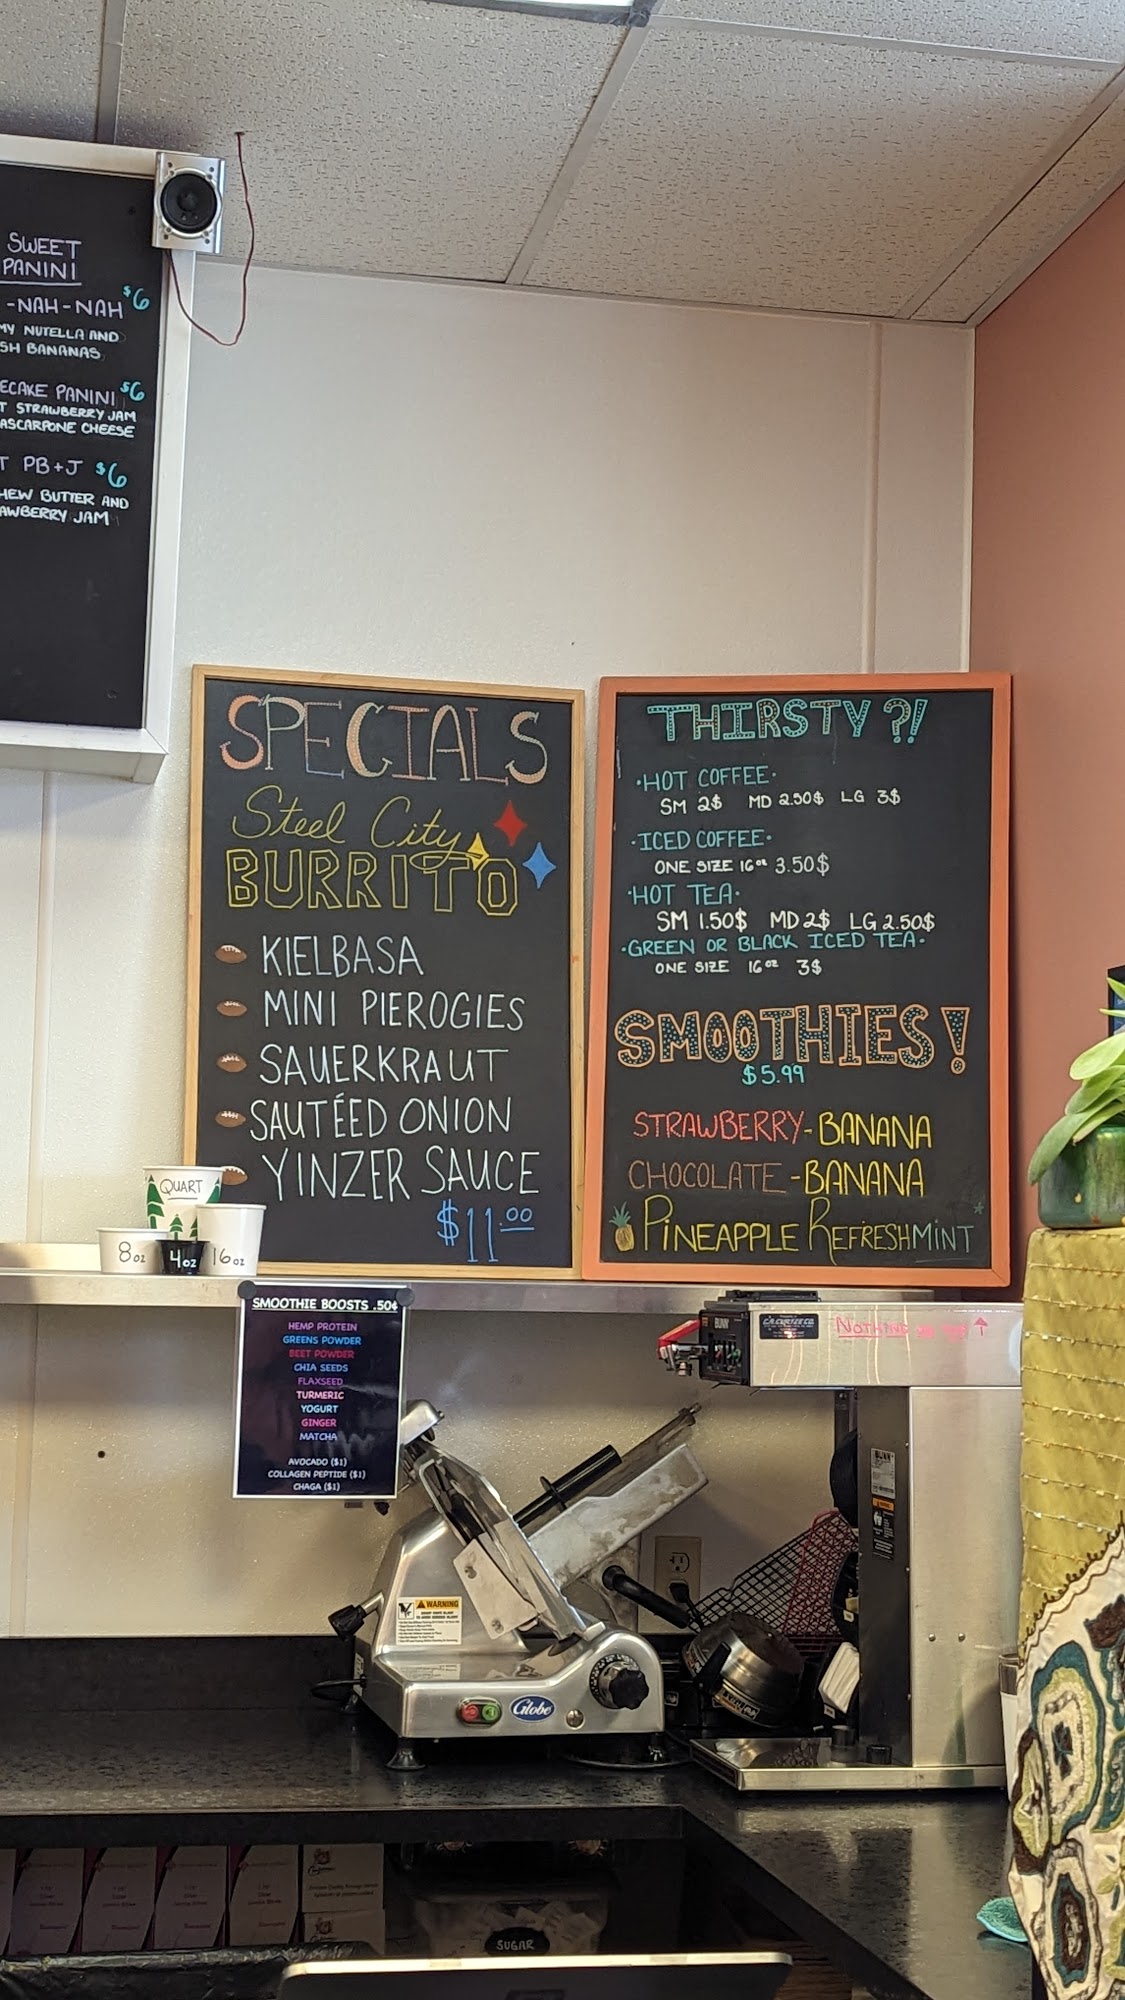 SWEET
PANINI
-NAH-NAH $6
MY NUTELLA AND
SH BANANAS
ECAKE PANINI $6
T STRAWBERRY JAM
ASCARPONE CHEESE
T PB+J $6
HEW BUTTER AND
AWBERRY JAM
SPECIALS
Steel City
BURRITO
KIELBASA
MINI PIEROGIES
SAUERKRAUT
SAUTÉED ONION
YINZER SAUCE
$11.00
THIRSTY?!
·HOT COFFEE·
SM 2$ MD 2.50$ LG 3$
·ICED COFFEE·
ONE SIZE 16oz 3.50$
·HOT TEA·
SM 1.50$ MD 2$ LG 2.50$
·GREEN OR BLACK ICED TEA·
ONE SIZE 16oz 3$
SMOOTHIES!
$5.99
STRAWBERRY-BANANA
CHOCOLATE-BANANA
PINEAPPLE REFRESHMINT
QUART
8oz
4oz
16oz
SMOOTHIE BOOSTS .50¢
HEMP PROTEIN
GREENS POWDER
BEET POWDER
CHIA SEEDS
FLAXSEED
TURMERIC
YOGURT
GINGER
MATCHA
AVOCADO ($1)
COLLAGEN PEPTIDE ($1)
CHAGA ($1)
BUNN
NOTHING
WARNING
Globe
SUGAR